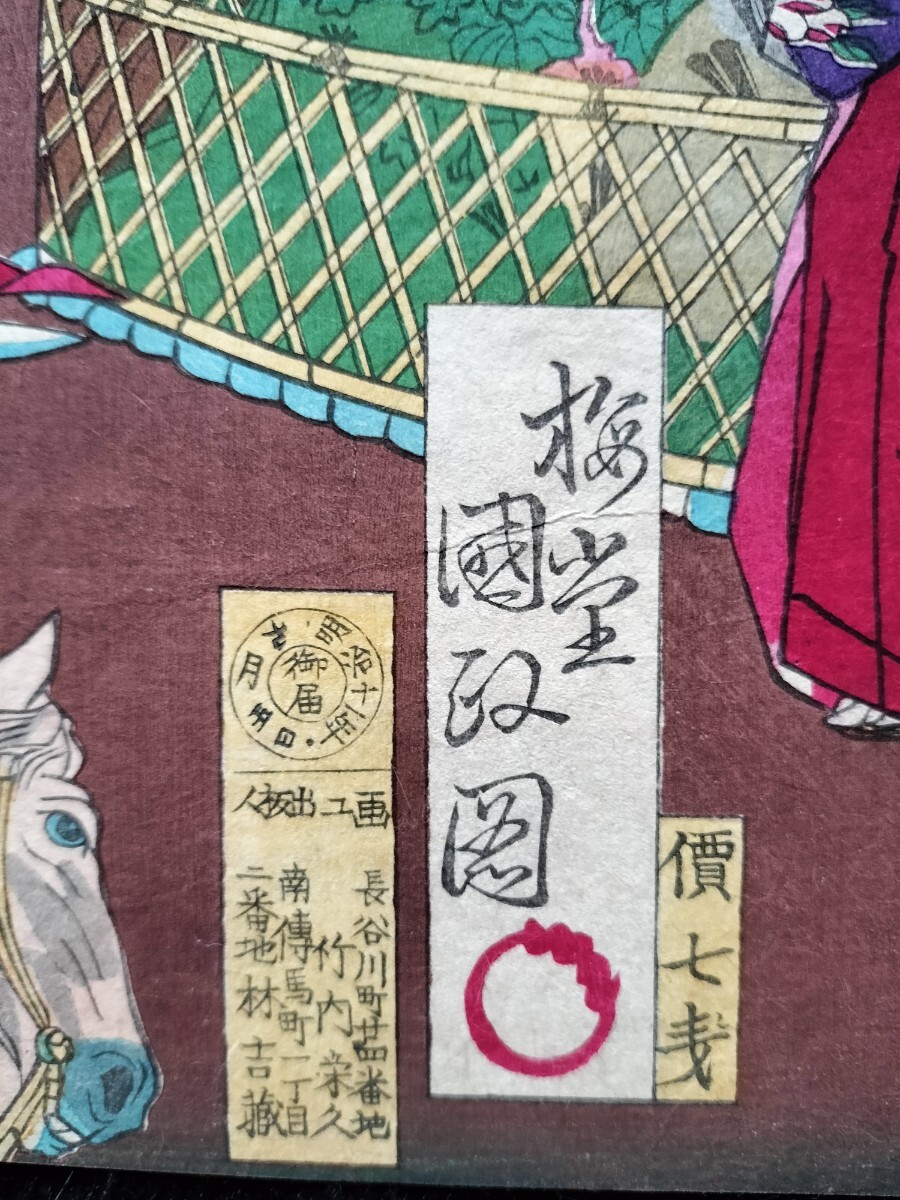 梅堂
國政圖
價七戔
明治十一年
月五日
御届
画工
長谷川町廿四番地
竹内栄久
出板人
南傳馬町一丁目
二番地林吉藏